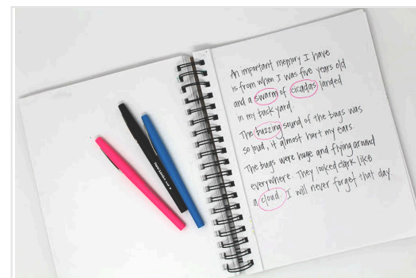 An important memory I have
is from when I was five years old
and a swarm of cicadas landed
in my back yard.
The buzzing sound of the bugs was
so loud, it almost hurt my ears.
The bugs were huge and flying around
everywhere. They looked dark like
a cloud. I will never forget that day.